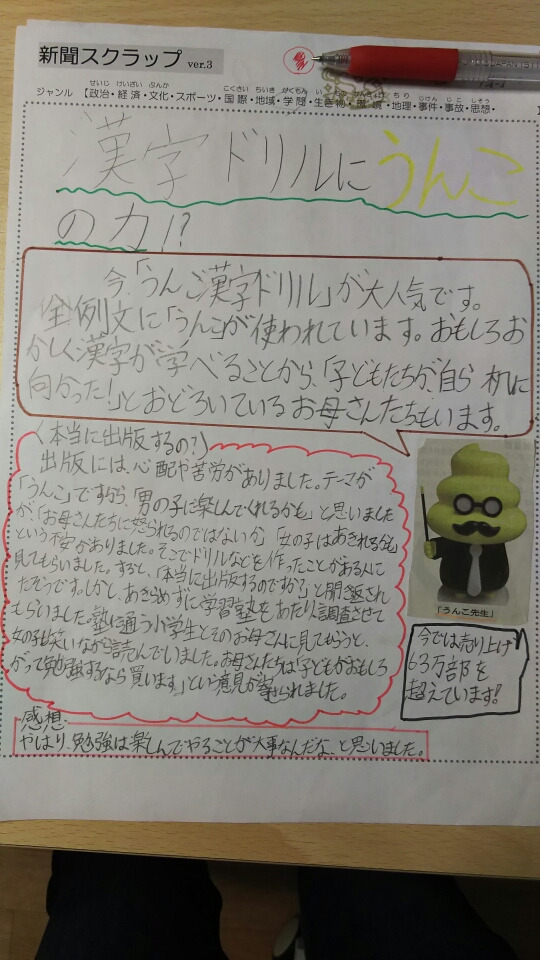 新聞スクラップ ver.3
せいじ けいざい ぶんか こくさい ちいき がくもん ちり じけん じこ しそう
ジャンル 【政治・経済・文化・スポーツ・国際・地域・学問・生き物・環境・地理・事件・事故・思想・
漢字ドリルにうんこ
の力!?
今、「うんこ漢字ドリル」が大人気です。
全例文に「うんこ」が使われています。おもしろお
かしく漢字が学べることから、「子どもたちが、自ら机に
向かった!」とおどろいているお母さんたちもいます。
〈本当に出版するの?〉
出版には、心配や苦労がありました。テーマが
「うんこ」ですから、「男の子に楽しんでくれるかも」と思いました
が、「お母さんたちに怒られるのではないか」「女の子はあきれるかも」
という不安がありました。そこでドリルなどを作ったことがある人に
見てもらいました。すると、「本当に出版するのですか?」と聞き返され
たそうです。しかし、あきらめずに学習塾をあたり、調査させて
もらいました。塾に通う小学生とそのお母さんに見てもらうと、
女の子も笑いながら読んでいました。お母さんたちは「子どもがおもしろ
がって勉強するなら買います」という意見が寄せられました。
「うんこ先生」
今では売り上げ
63万部を
超えています!
感想
やはり、勉強は楽しんでやることが大事なんだな、と思いました。